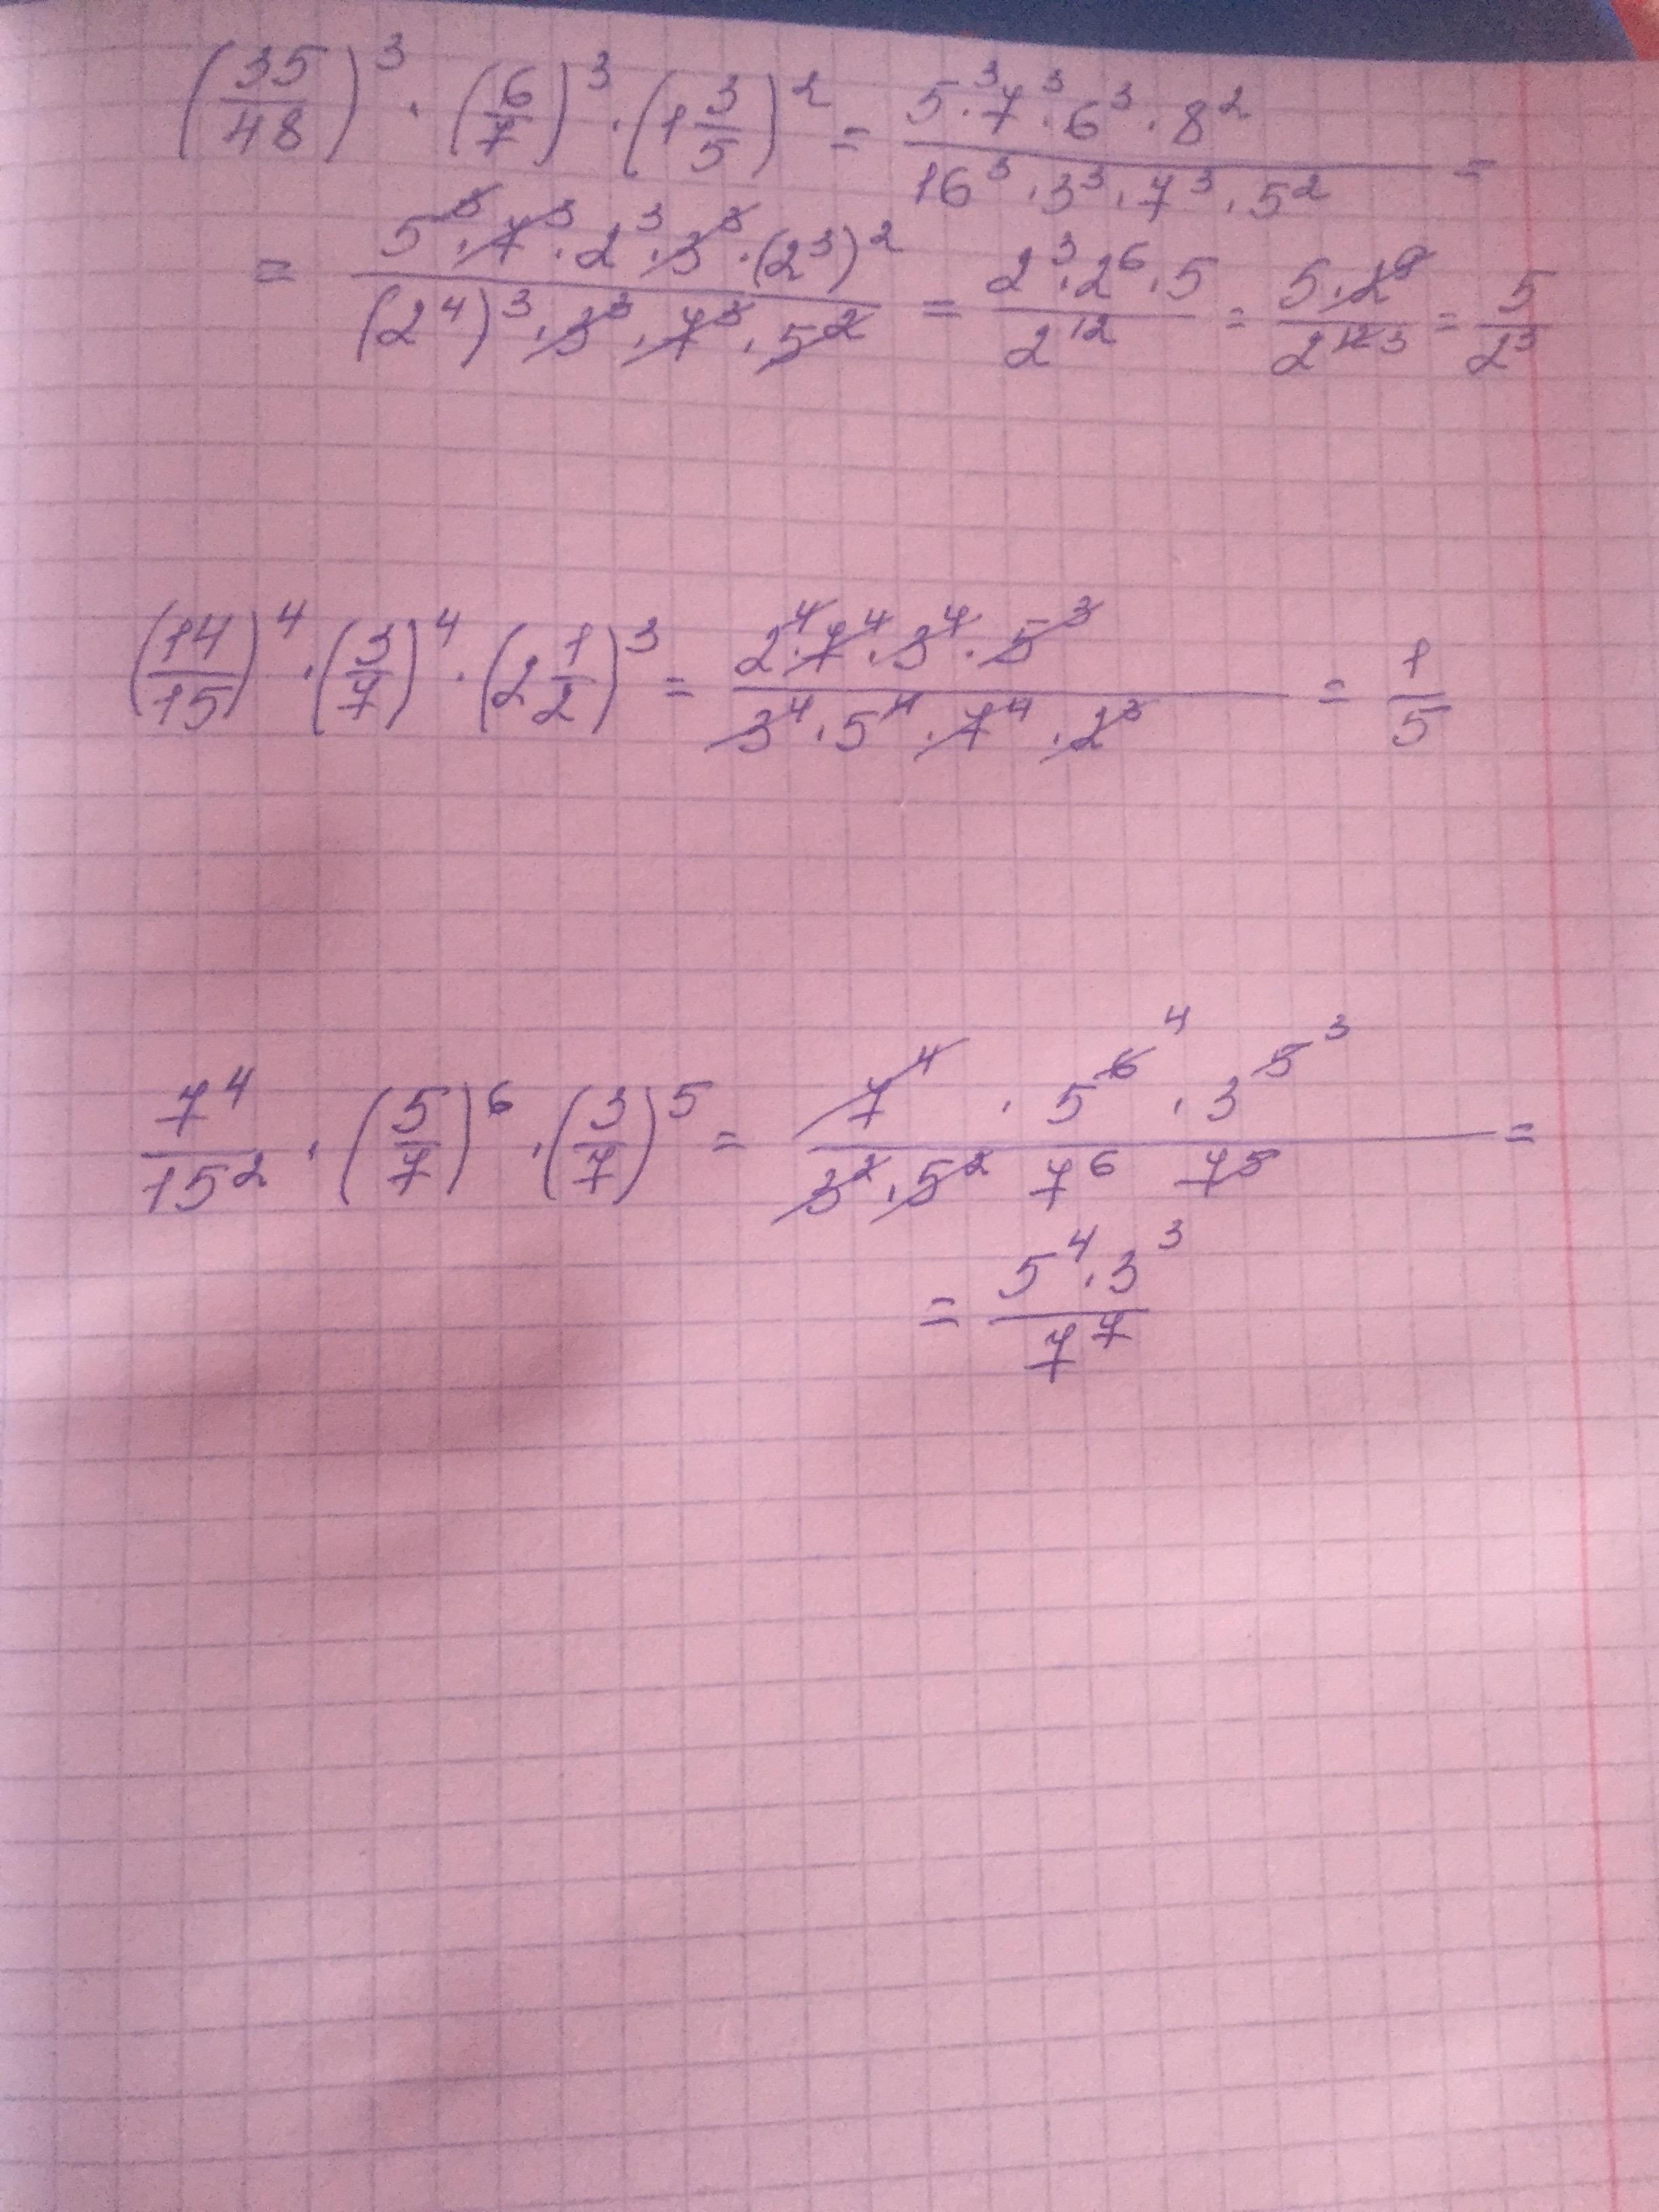 (35/48)³ · (6/7)³ · (1 3/5)² = (5·³7·³6³·8²)/(16³·3³·7³·5²) =
= (5³·7³·2³·3³·(2³)²)/((2⁴)³·3³·7³·5²) = (2³·2⁶·5)/2¹² = (5·2⁹)/2¹²³ = 5/2³
(14/15)⁴ · (3/7)⁴ · (2 1/2)³ = (2⁴·7⁴·3⁴·5³)/(3⁴·5⁴·7⁴·2³) = 1/5
7⁴/15² · (5/7)⁶ · (3/7)⁵ = (7⁴ · 5⁶ ⁴ · 3⁵ ³)/(3²·5² 7⁶ 7⁵) =
= (5⁴·3³)/7⁷